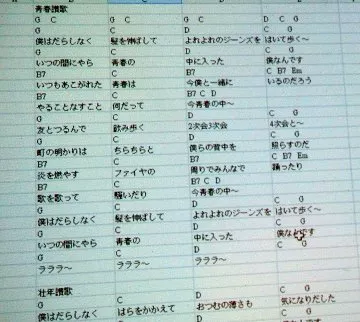 青春讃歌
G C G C G C D C G
G C D C G
僕はだらしなく 髪を伸ばして よれよれのジーンズを はいて歩く～
G C D C G
いつの間にやら 青春の 中に入った 僕なんです
B7 C D C B7 Em
いつもあこがれた 青春は 今僕と一緒に いるのだろう
B7 C B7 C D
やることなすこと 何だって 今青春の中～
G C D C G
友とつるんで 飲み歩く 2次会3次会 4次会と～
G C D C G
町の明かりは ちらちらと 僕らの背中を 照らすのだ
B7 C D C B7 Em
炎を燃やす ファイヤの 周りでみんなで 踊ったり
B7 C B7 C D
歌を歌って 騒いだり 今青春の中～
G C D C G
僕はだらしなく 髪を伸ばして よれよれのジーンズを はいて歩く～
G C D C G
いつの間にやら 青春の 中に入った 僕なんです
G C D C G
ラララ～ ラララ～ ラララ～
壮年讃歌
G C D C G
僕はだらしなく はらをかかえて おつむの薄さも 気になりだした
G C D C G